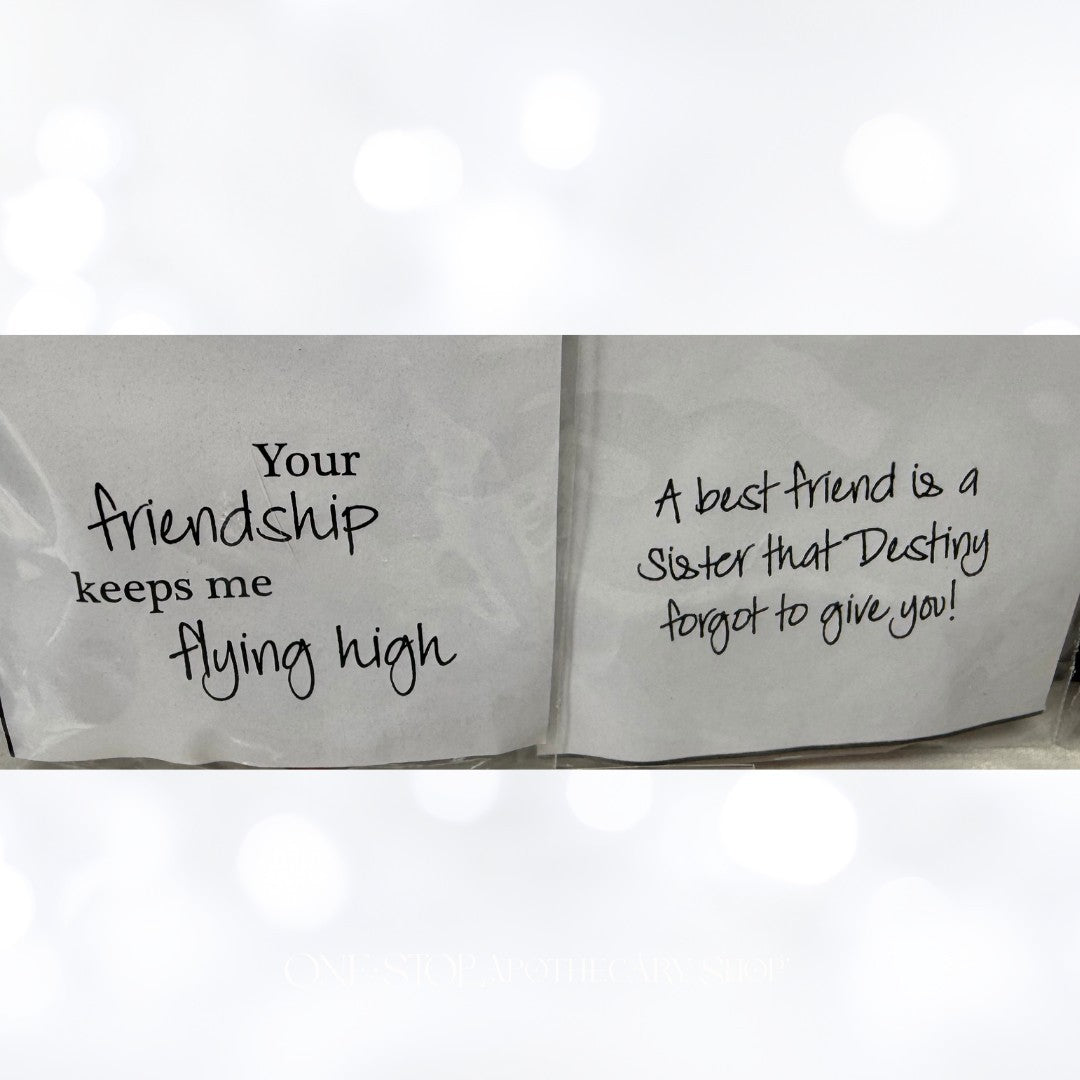 Your
friendship
keeps me
flying high
A best friend is a
Sister that Destiny
forgot to give you!
ONE STOP APOTHECARY SHOP